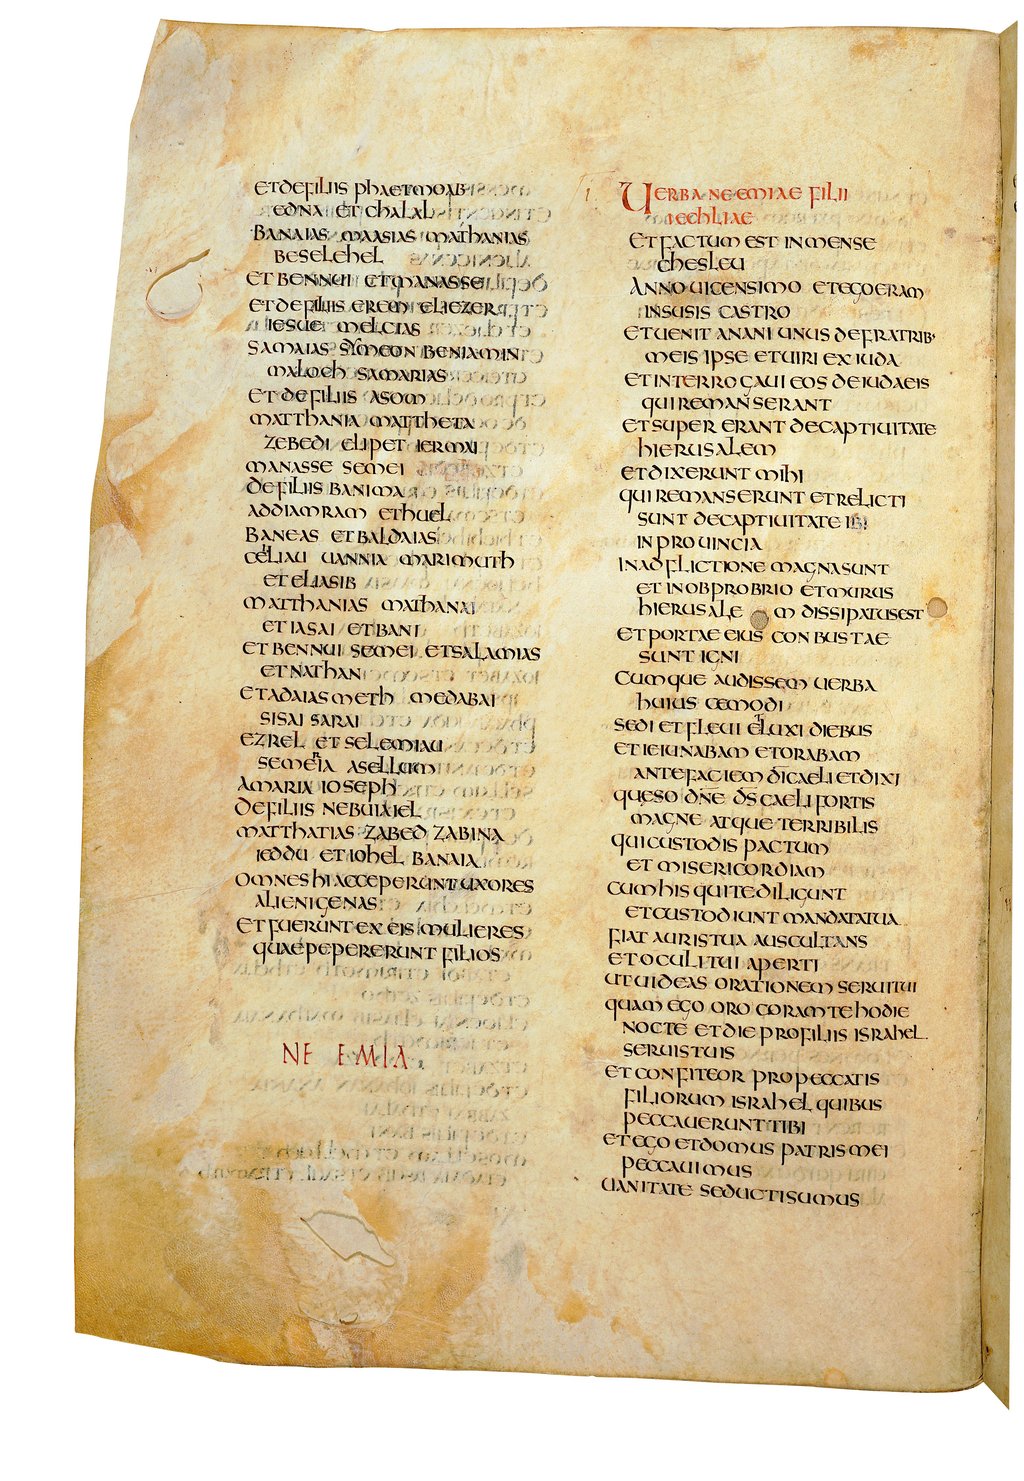 ET DE FILIIS PHAETMOAB
EDNA ET CHALAL
BANAIAS MAASIAS MATHANIAS
BESELEHEL
ET BENNUI ET MANASSE
ET DE FILIIS EREM ELIEZER
IESUE MELCIAS
SAMAIAS SYMEON BENIAMIN
MALOCH SAMARIAS
ET DE FILIIS ASOM
MATTHANIA MATTHETA
ZEBEDI ELIPET IERMAI
MANASSE SEMEI
DE FILIIS BANI MA
ADDI AMRAM ET HUEL
BANEAS ET BALDAIAS
CELIAU UANNIA MARIMUTH
ET ELIASIB
MATTHANIAS MATHANAI
ET IASAI ET BANI
ET BENNUI SEMEI ET SALAMIAS
ET NATHAN
ET ADAIAS METH MEDABAI
SISAI SARAI
EZREL ET SELEMIAU
SEMERIA ASELLUM
AMARIA IOSEPH
DE FILIIS NEBUIAIEL
MATTHATIAS ZABED ZABINA
IEDDU ET IOHEL BANAIA
OMNES HI ACCEPERUNT UXORES
ALIENIGENAS
ET FUERUNT EX EIS MULIERES
QUAE PEPERERUNT FILIOS
NE EMIA
UERBA NEEMIAE FILII
ECHLIAE
ET FACTUM EST IN MENSE
CHESLEU
ANNO UICENSIMO ET EGO ERAM
IN SUSIS CASTRO
ET UENIT ANANI UNUS DE FRATRIB·
MEIS IPSE ET UIRI EX IUDA
ET INTERROGAUI EOS DE IUDAEIS
QUI REMANSERANT
ET SUPERERANT DE CAPTIUITATE
HIERUSALEM
ET DIXERUNT MIHI
QUI REMANSERUNT ET RELICTI
SUNT DE CAPTIUITATE IBI
IN PROUINCIA
IN ADFLICTIONE MAGNA SUNT
ET IN OBPROBRIO ET MURUS
HIERUSALE M DISSIPATUS EST
ET PORTAE EIUS CONBUSTAE
SUNT IGNI
CUMQUE AUDISSEM UERBA
HUIUS CEMODI
SEDI ET FLEUI ET LUXI DIEBUS
ET IEIUNABAM ET ORABAM
ANTE FACIEM DI CAELI ET DIXI
QUESO DNE DS CAELI FORTIS
MAGNE ATQUE TERRIBILIS
QUI CUSTODIS PACTUM
ET MISERICORDIAM
CUM HIS QUI TE DILIGUNT
ET CUSTODIUNT MANDATA TUA
FIAT AURIS TUA AUSCULTANS
ET OCULI TUI APERTI
UT UIDEAS ORATIONEM SERUI TUI
QUAM EGO ORO CORAM TE HODIE
NOCTE ET DIE PRO FILIIS ISRAHEL
SERUIS TUIS
ET CONFITEOR PRO PECCATIS
FILIORUM ISRAHEL QUIBUS
PECCAUERUNT TIBI
ET EGO ET DOMUS PATRIS MEI
PECCAUIMUS
UANITATE SEDUCTI SUMUS